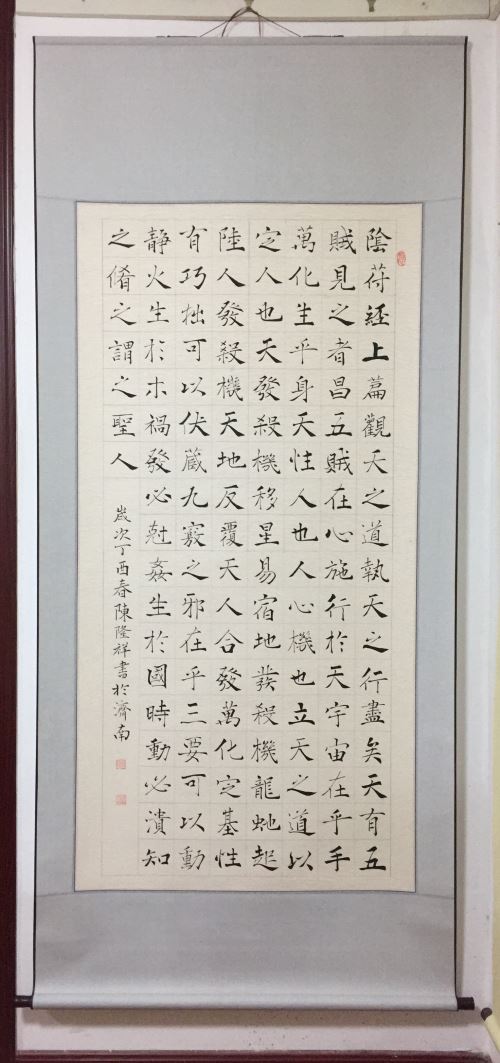 陰苻經上篇觀天之道執天之行盡矣天有五
賊見之者昌五賊在心施行於天宇宙在乎手
萬化生乎身天性人也人心機也立天之道以
定人也天發殺機移星易宿地發殺機龍虵起
陸人發殺機天地反覆天人合發萬化定基性
有巧拙可以伏藏九竅之邪在乎三要可以動
靜火生於木禍發必尅姦生於國時動必潰知
之脩之謂之聖人
歲次丁酉春陳隆祥書於濟南